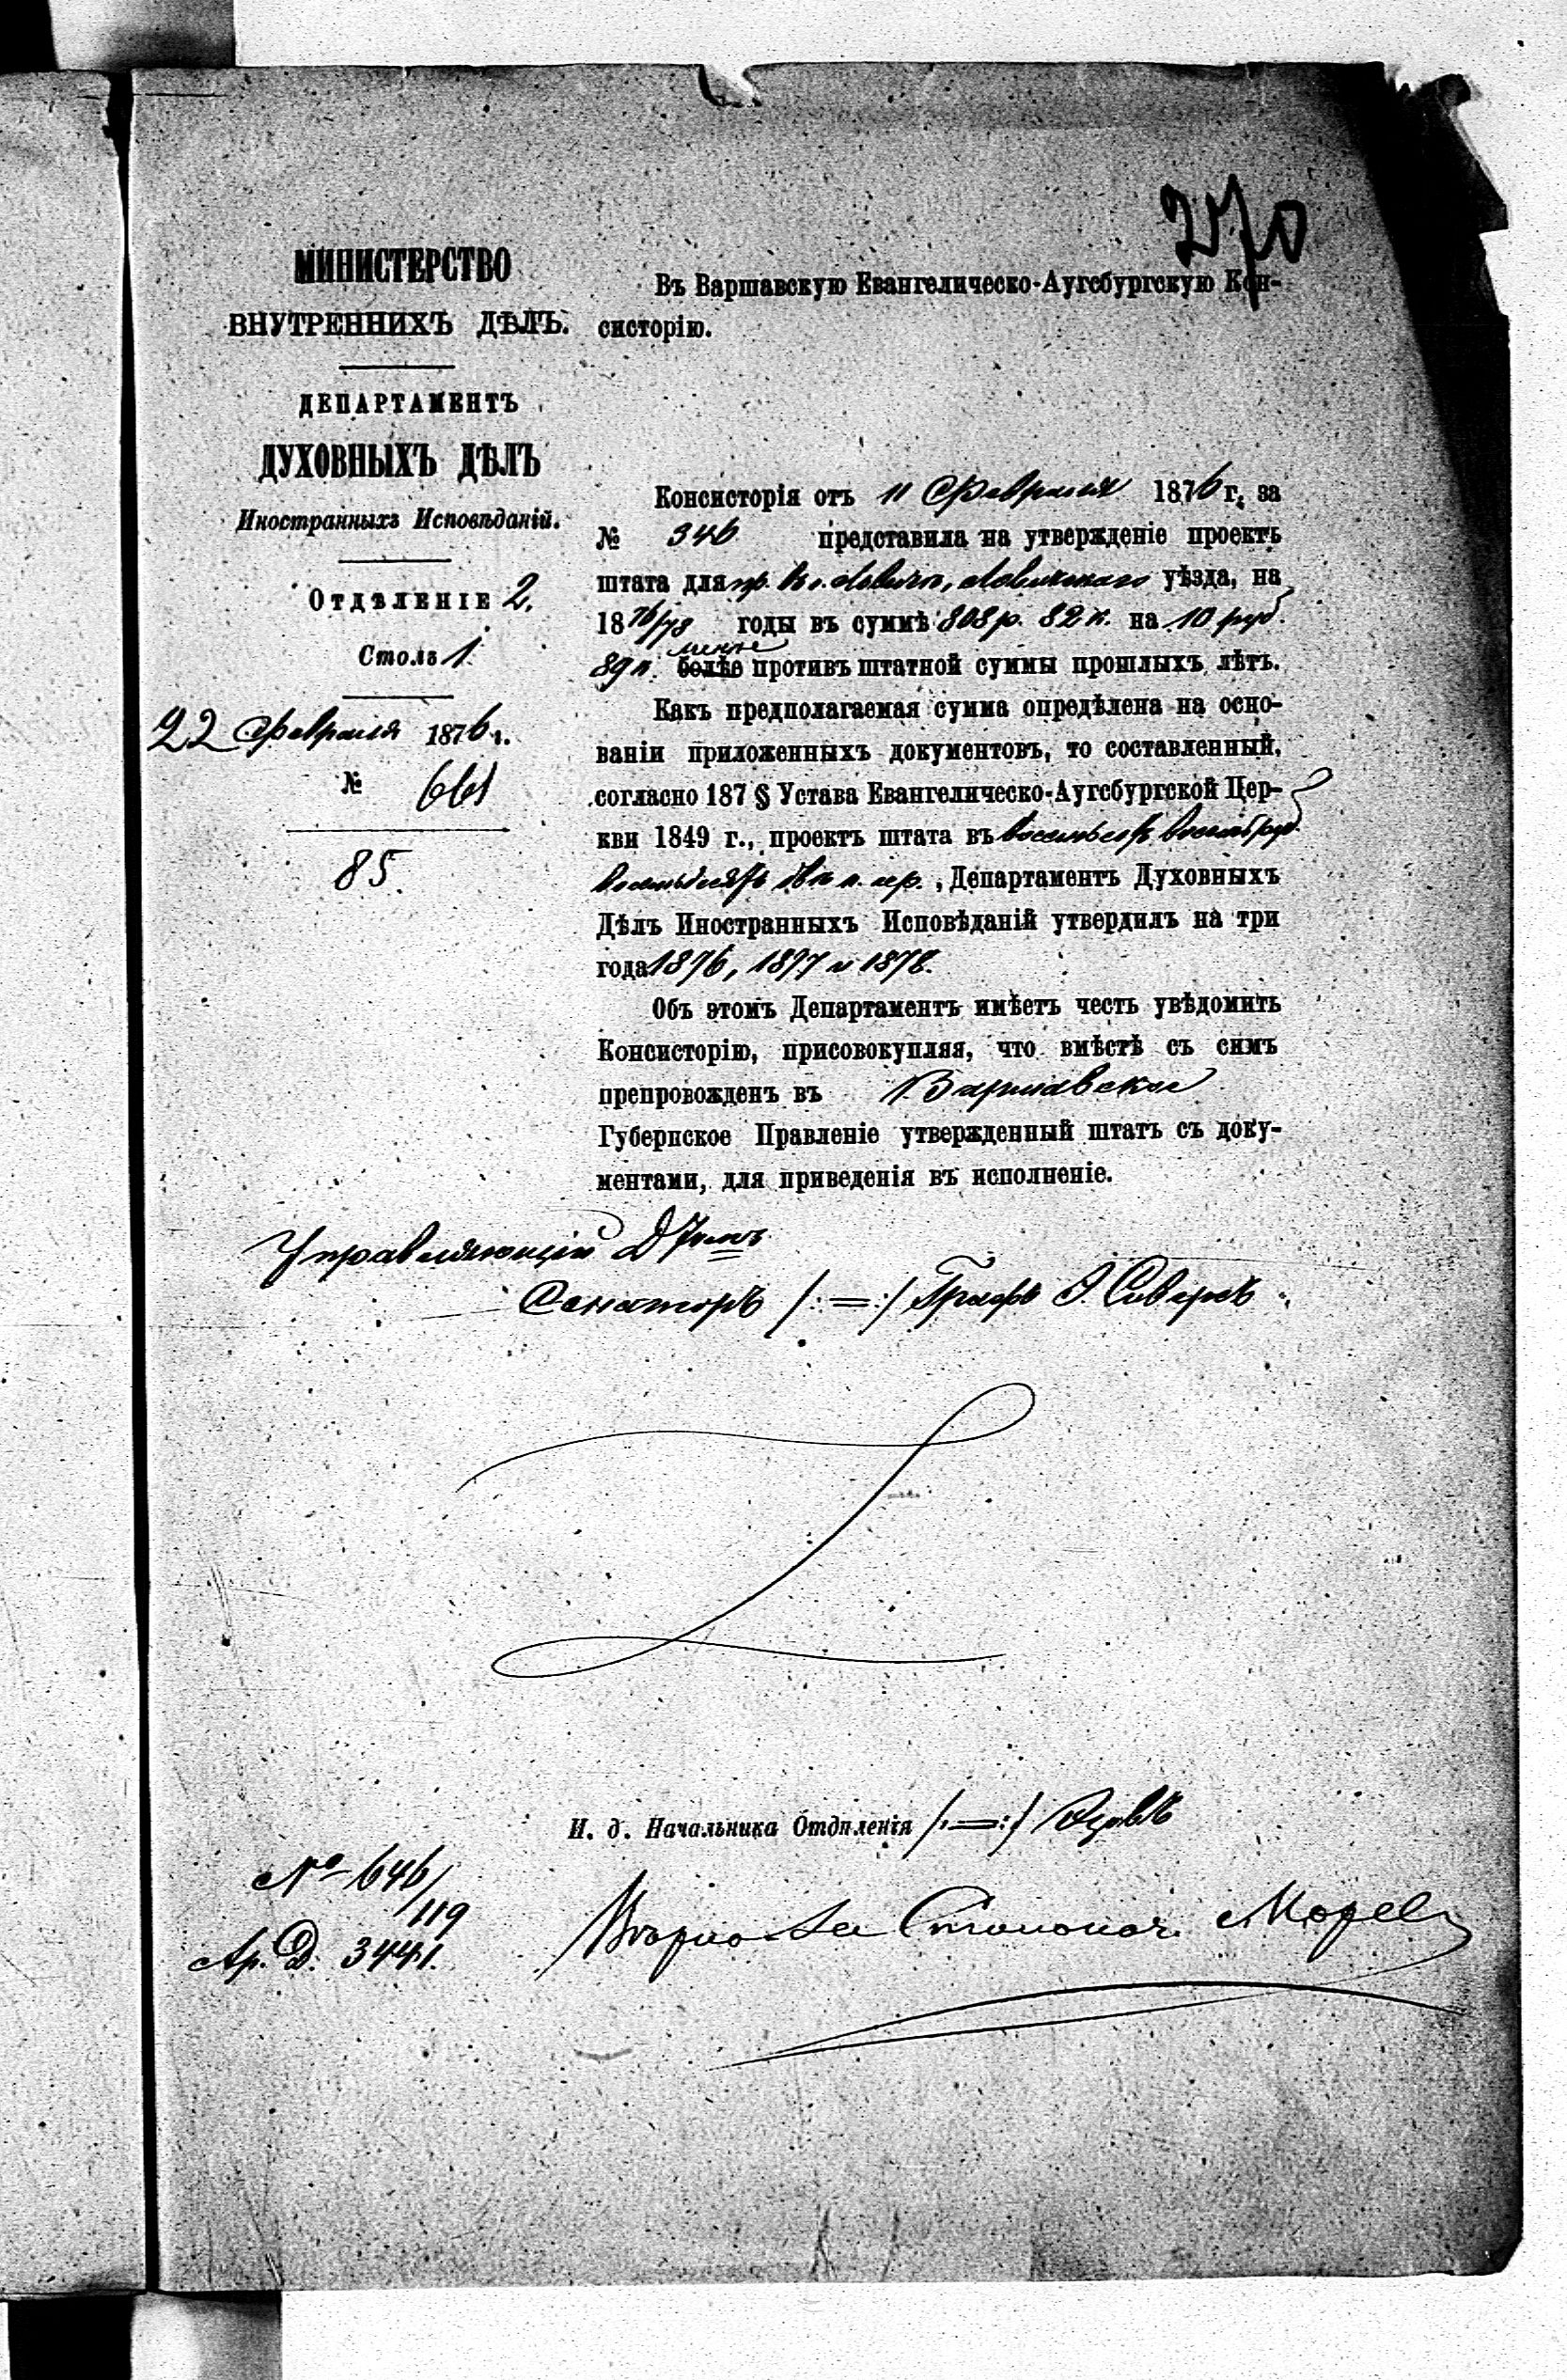 270
МИНИСТЕРСТВО
ВНУТРЕННИХЪ ДѢЛЪ.
ДЕПАРТАМЕНТЪ
ДУХОВНЫХЪ ДѢЛЪ
Иностранныхъ Исповѣданій.
ОТДѢЛЕНІЕ 2.
Столъ 1.
22 Февраля 1876 г.
№ 661
85.
Въ Варшавскую Евангелическо-Аугсбургскую Кон-
систорію.
Консисторія отъ 11 Февраля 1876 г. за
№ 346 представила на утвержденіе проектъ
штата для пр. въ г. Ловичѣ, Ловичскаго уѣзда, на
1876/78 годы въ суммѣ 808 р. 82 к. на 10 руб.
менѣе
89 к. болѣе противъ штатной суммы прошлыхъ лѣтъ.
Какъ предполагаемая сумма опредѣлена на осно-
ваніи приложенныхъ документовъ, то составленный,
согласно 187 § Устава Евангелическо-Аугсбургской Цер-
кви 1849 г., проектъ штата въ восемьсотъ восемь руб.
восемьдесятъ двѣ к. сер., Департаментъ Духовныхъ
Дѣлъ Иностранныхъ Исповѣданій утвердилъ на три
года 1876, 1877 и 1878.
Объ этомъ Департаментъ имѣетъ честь увѣдомить
Консисторію, присовокупляя, что вмѣстѣ съ симъ
препровожденъ въ Варшавское
Губернское Правленіе утвержденный штатъ съ доку-
ментами, для приведенія въ исполненіе.
Управляющій
Сенаторъ /:=:/ Графъ Э. Сиверсъ
И. д. Начальника Отдѣленія /:=:/
№ 646/119
Ар. Д. 3441.
Вѣрно: За Столонач.